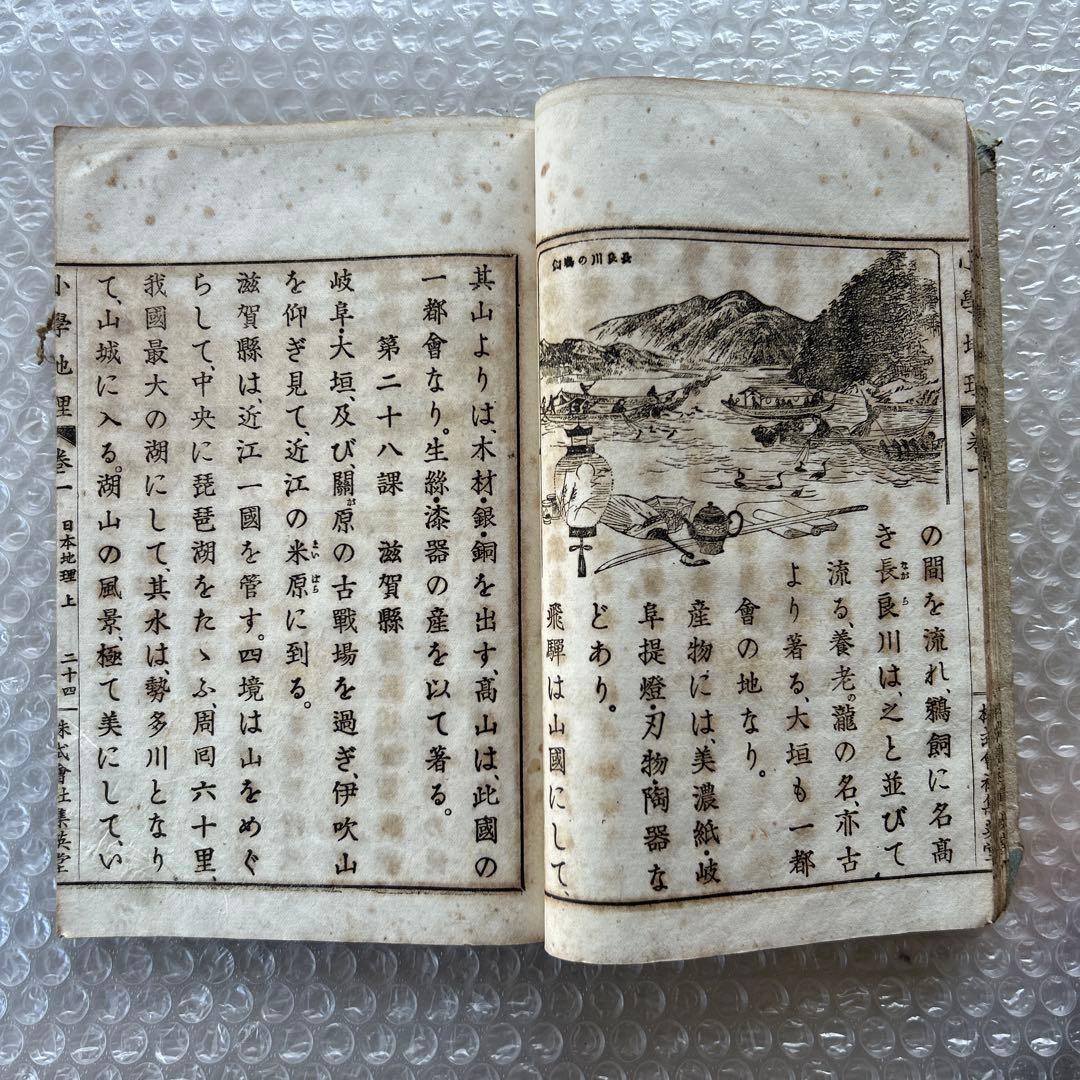 長良川の鵜飼
の間を流れ、鵜飼に名高
き長良川は、之と並びて
流る、養老の瀧の名、亦古
より著る、大垣も一都
會の地なり。
産物には、美濃紙・岐
阜提燈・刃物・陶器な
どあり。
飛騨は山國にして、
其山よりは、木材・銀・銅を出す、高山は、此國の
一都會なり。生絲・漆器の産を以て著る。
第二十八課 滋賀縣
岐阜・大垣、及び、關原の古戰場を過ぎ、伊吹山
を仰ぎ見て、近江の米原に到る。
滋賀縣は、近江一國を管す。四境は山をめぐ
らして、中央に琵琶湖をたゝふ、周囘六十里、
我國最大の湖にして、其水は、勢多川となり
て、山城に入る。湖山の風景、極て美にして、い
小學地理 卷二 日本地理上 二十四 株式會社集英堂